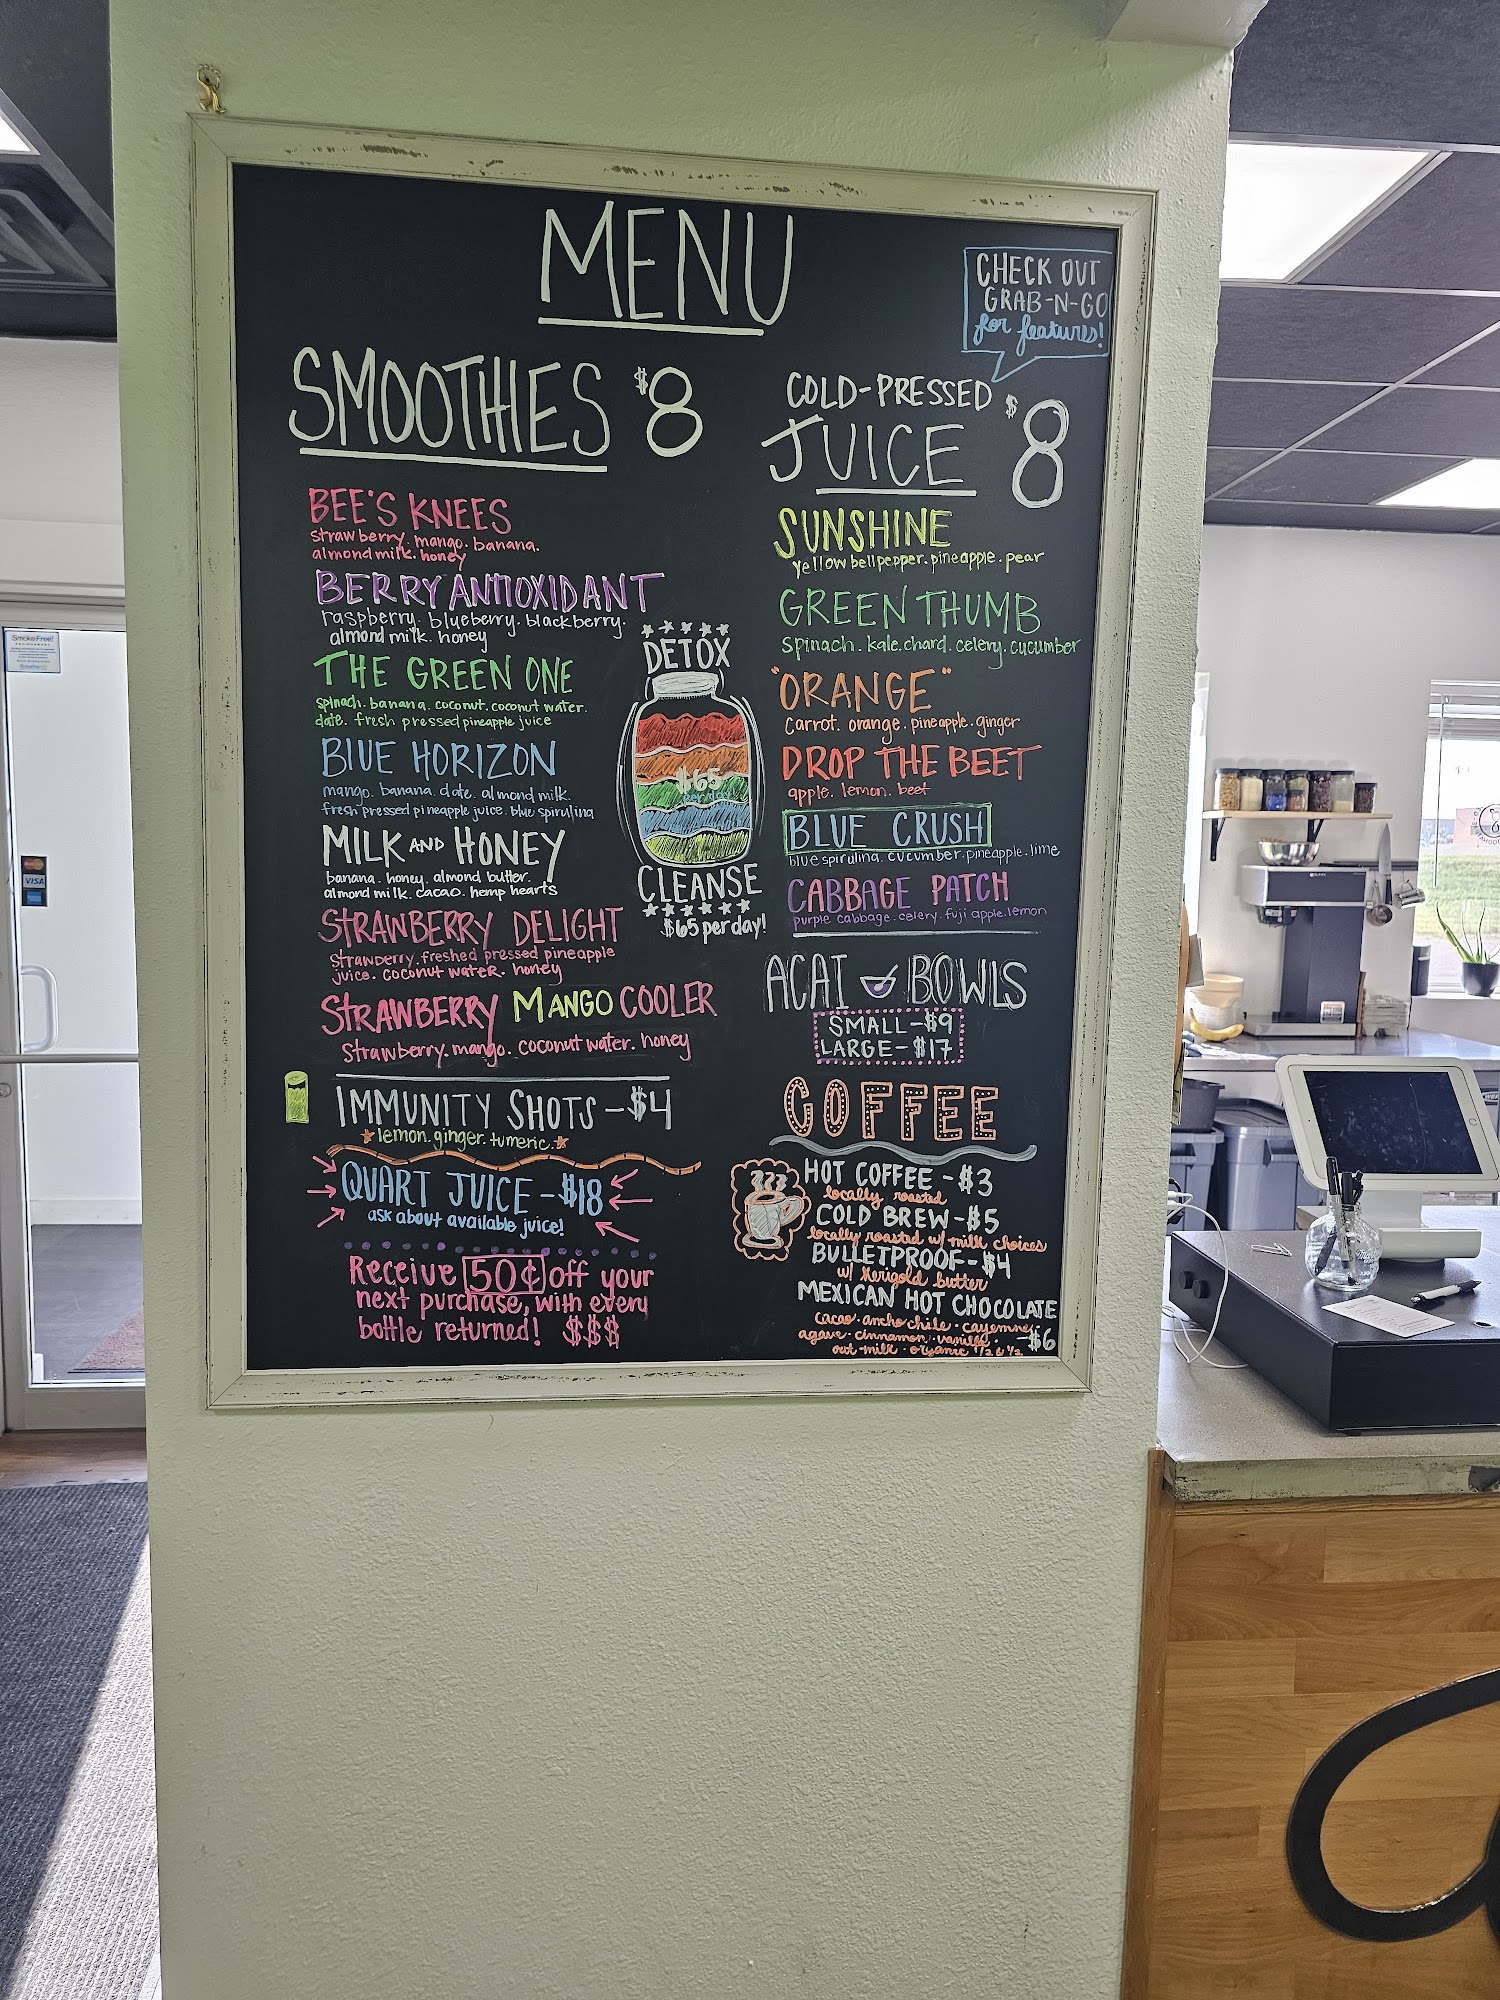 MENU
CHECK OUT
GRAB-N-GO
for features!
SMOOTHIES $8
BEE'S KNEES
strawberry. mango. banana.
almond milk. honey
BERRY ANTIOXIDANT
raspberry. blueberry. blackberry.
almond milk. honey
THE GREEN ONE
spinach. banana. coconut. coconut water.
date. fresh pressed pineapple juice
BLUE HORIZON
mango. banana. date. almond milk.
fresh pressed pineapple juice. blue spirulina
MILK AND HONEY
banana. honey. almond butter.
almond milk. cacao. hemp hearts
STRAWBERRY DELIGHT
strawberry. freshed pressed pineapple
juice. coconut water. honey
STRAWBERRY MANGO COOLER
strawberry. mango. coconut water. honey
DETOX
$65
per day!
CLEANSE
$65 per day!
IMMUNITY SHOTS - $4
lemon. ginger. tumeric.
QUART JUICE - $18
ask about available juice!
Receive 50¢ off your
next purchase, with every
bottle returned! $$$
COLD-PRESSED
JUICE $8
SUNSHINE
yellow bell pepper. pineapple. pear
GREEN THUMB
spinach. kale. chard. celery. cucumber
"ORANGE"
carrot. orange. pineapple. ginger
DROP THE BEET
apple. lemon. beet
BLUE CRUSH
blue spirulina. cucumber. pineapple. lime
CABBAGE PATCH
purple cabbage. celery. fuji apple. lemon
ACAI BOWLS
SMALL - $9
LARGE - $17
COFFEE
HOT COFFEE - $3
locally roasted
COLD BREW - $5
locally roasted w/ milk choices
BULLETPROOF - $4
w/ Kerigold butter
MEXICAN HOT CHOCOLATE
cacao. ancho chile. cayenne.
agave. cinnamon. vanilla. - $6
oat-milk. organic 1/2 & 1/2
Smoke Free!
VISA